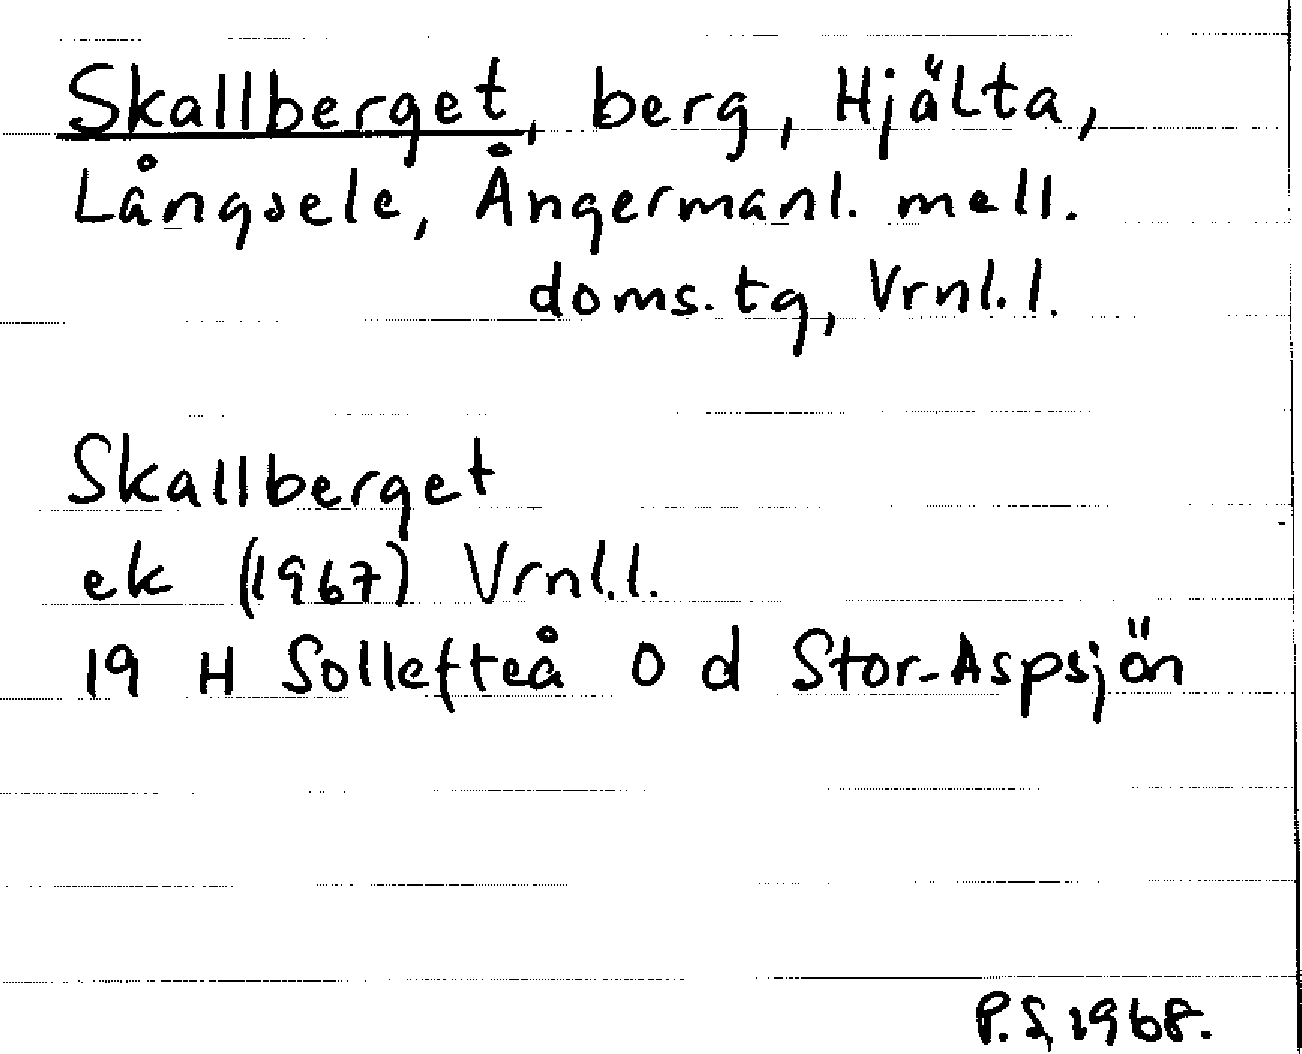 Skallberget, berg, Hjälta,
Långsele, Ångermanl. mell.
doms.tg, Vrnl.l.
Skallberget
ek (1967) Vrnl.l.
19 H Sollefteå O d Stor-Aspsjön
P.S, 1968.